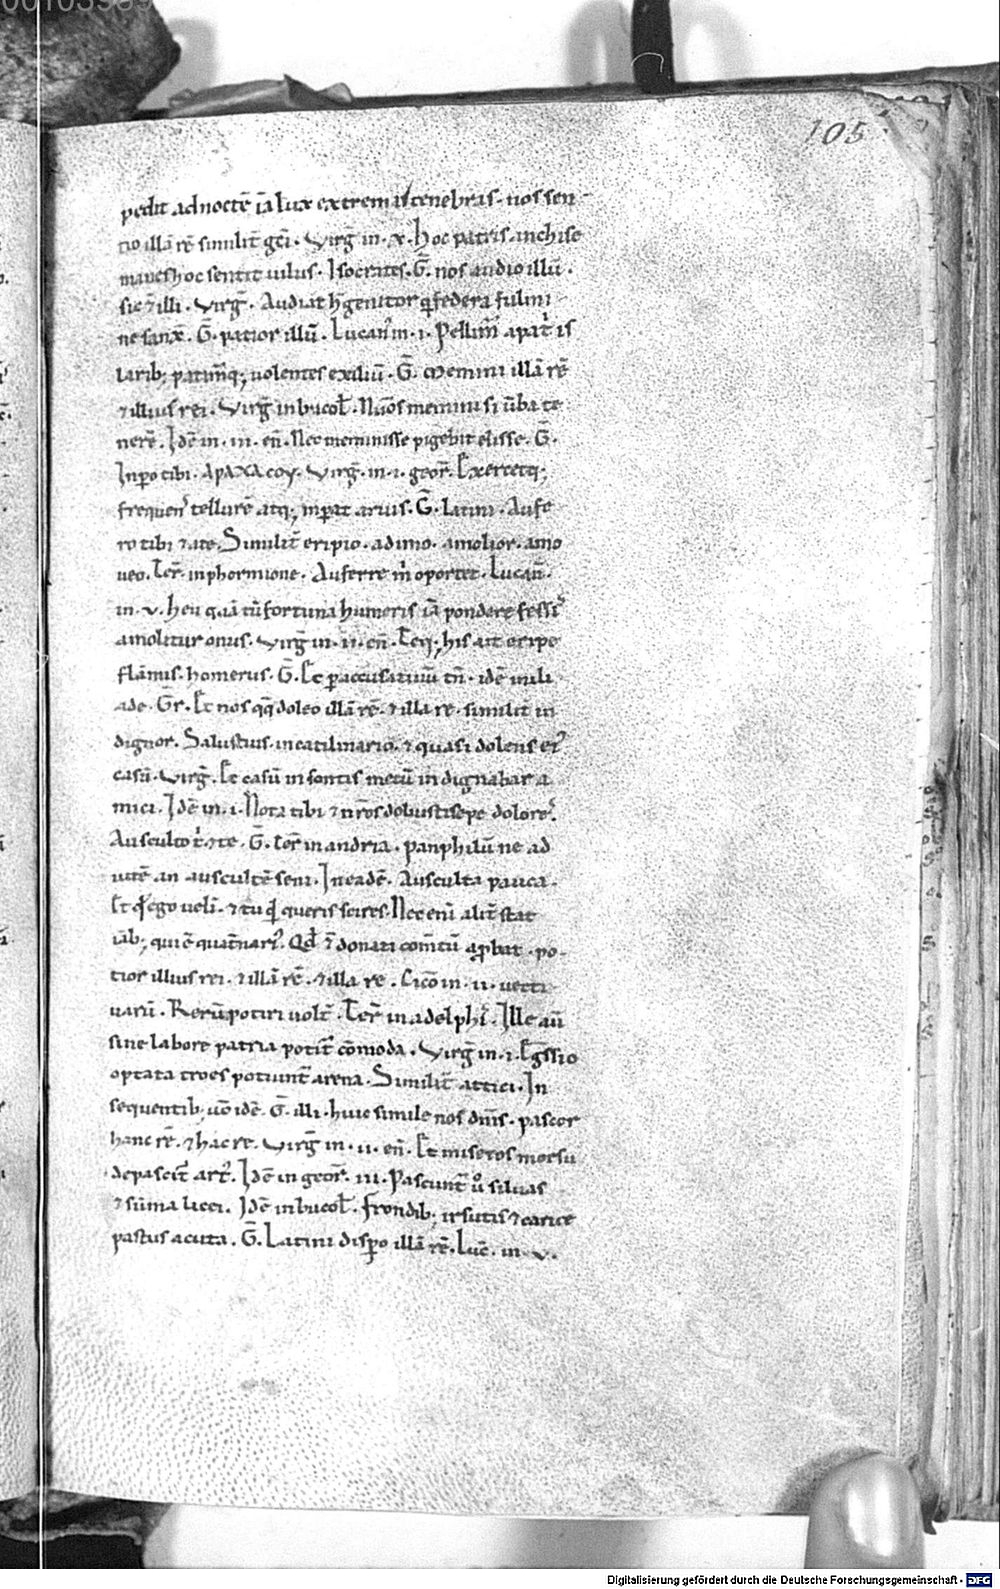 105
pedit ad noctē iā lux extrema tenebras. nos sen
tio illā rē similit̄ gci. Virḡ in. x. Hoc patris anchise
manes hoc sentit iulus. Isocrates. Ḡ. nos audio illū.
sic illi. Virḡ. Audiat h̄ genitor q̄ federa fulmi
ne sanx̄. Ḡ. patior illū. Lucan̄ in. i. Pellim̄
larib; patimq; uolentes exiliū. Ḡ. memini illā rē
& illius rei. Virḡ in bucol̄. Num̄os memini si ūba te
nerē. Idē in. iii. en̄. Nec meminisse pigebit elisse. Ḡ.
Inpo tibi. Virḡ. in. i. geor̄. Exercetq;
frequens tellurē atq; inpat aruis. Ḡ. Latini. Aufe
ro tibi & a te. Similit̄ eripio. adimo. amolior. amo
ueo. Ter̄. in phormione. Auferre m̄ oportet. Lucan̄.
in. v. heu q̄ tū fortuna humeris iā pondere fessis
amolitur onus. Virḡ in. ii. en̄. Teq; his ait eripe
flāmis. homerus. Ḡ. Et p accusatiuū tn̄. idē in ili
ade. Gr̄. Et nos qq̄ doleo illā rē. & illa re. similit̄ in
dignor. Salustius. in catilinario. & quasi dolens ei'
casū. Virḡ. Et casū in sontis mecū in dignabar a
mici. Idē in. i. Nota tibi & nr̄o s doluisti sepe dolore.
Ausculto t̄ & te. Ḡ. Ter̄ in andria. panphilū ne ad
iutē an auscultē seni. In eadē. Ausculta pauca.
Et q̄ ego uelī. & tu q̄ queris scires. Nec enī alit̄ stat
iāb; qui ē quat̄nari'. Qd̄ & donati com̄tū apbat. po-
tior illius rei. & illā rē. & illa re. Cico in. ii. uerri
narū. Rerū potiri uolt̄. Ter̄ in adelphi'. Ille aū
sine labore patria potit̄ cōmoda. Virḡ in. i. Egssio
optata troes potiunt̄ arena. Similit̄ attici. In
sequentib; uō idē. Ḡ. illi. huic simile nos dn̄s. pascor
hanc rē. & hac re. Virḡ in. ii. en̄. Et miseros morsu
depascit̄ art'. Idē in geor̄. iii. Pascunt̄ ū siluas
& sūma licei. Idē in bucol̄. frondib; irsutis & carice
pastus acuta. Ḡ. Latini dispo illā rē. Luc̄. in. v.
Digitalisierung gefördert durch die Deutsche Forschungsgemeinschaft - DFG